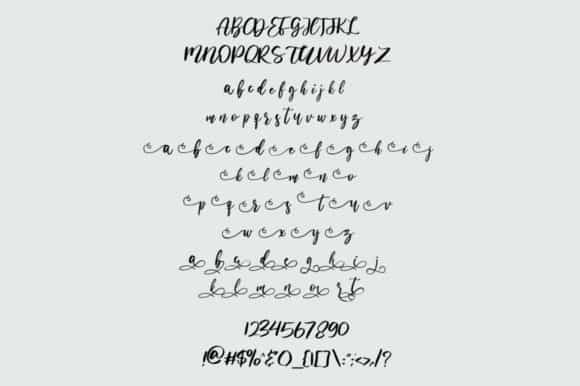 ABCDEFGHIJKL
MNOPQRSTUVWXYZ
a b c d e f g h i j k l
m n o p q r s t u v w x y z
a b c d e f g h i j
k l m n o
p q r s t u v
w x y z
a b c d e f g h i j
k l m n o r t
1234567890
!@#$%^&()_{}[]\:";<>,./?